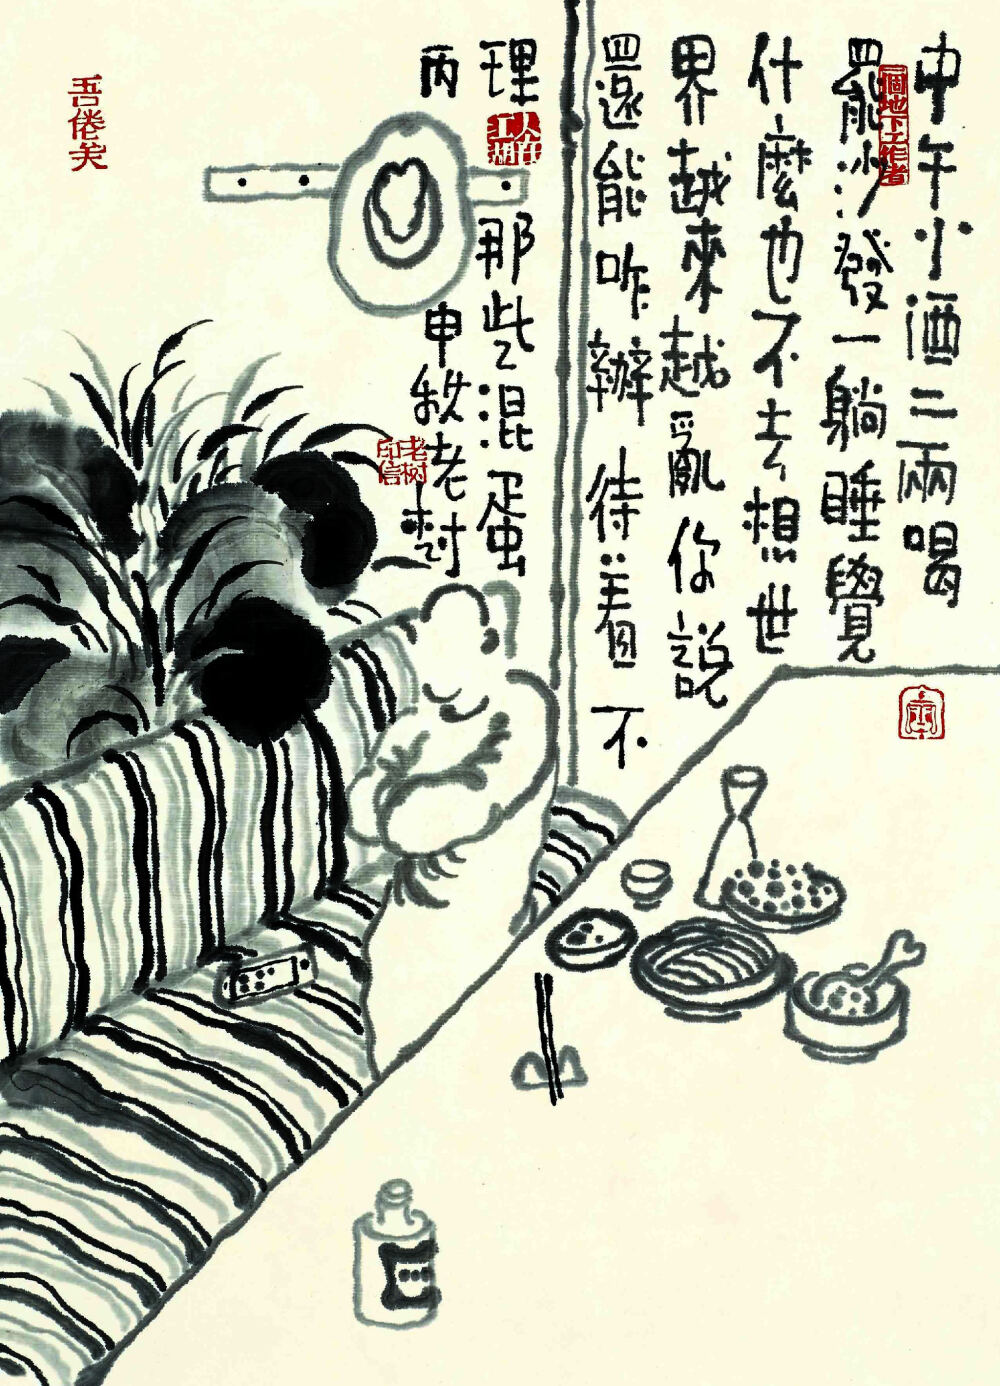 中午小酒二兩喝
罷沙發一躺睡覺
什麼也不去想世
界越來越亂你說
還能咋辦待着不
理那些混蛋
丙申秋老樹
一個地下工作者
人在江湖
老树印信
吾倦矣